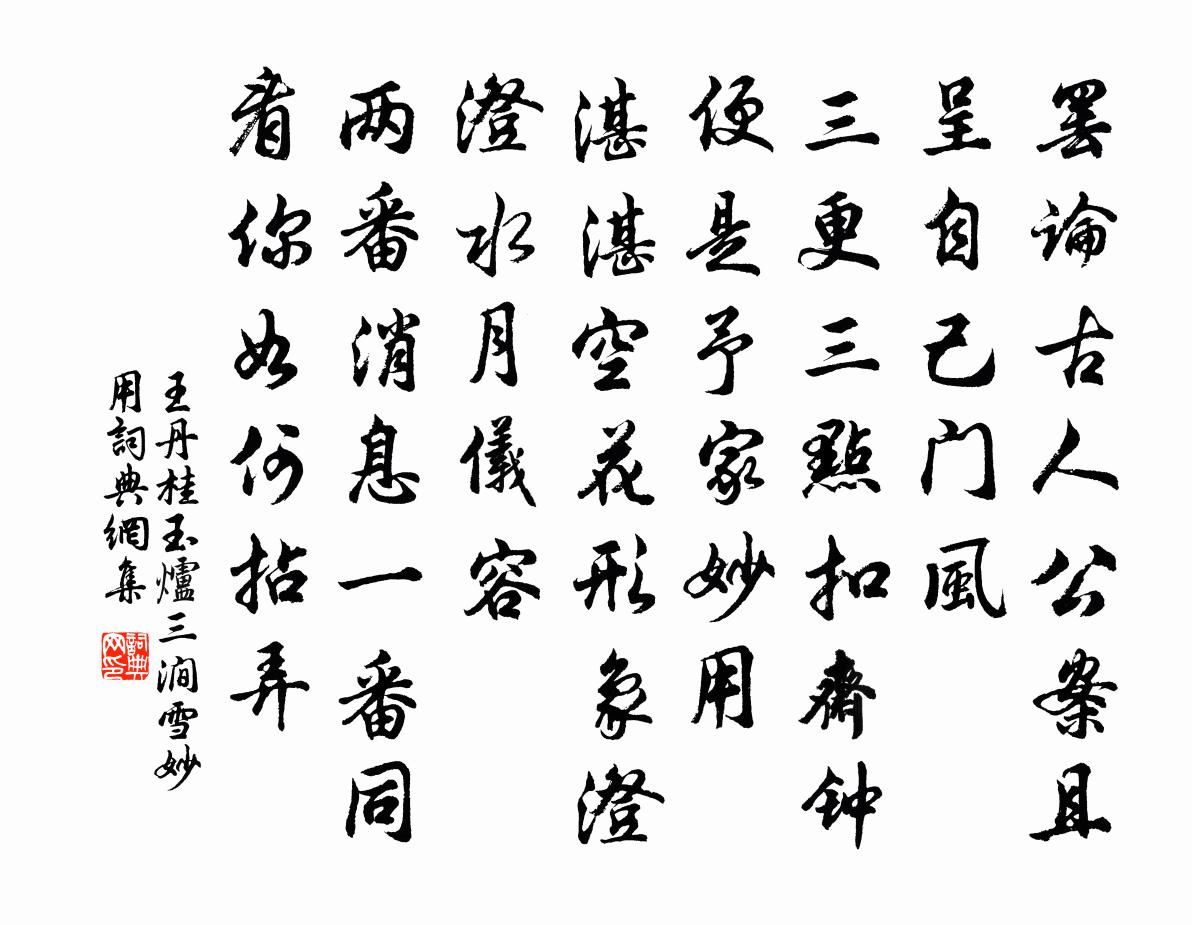 罢論古人公案且
呈自己门風
三更三點扣齋钟
便是予家妙用
湛湛空花形象澄
澄水月儀容
两番消息一番同
看你如何拈弄
王丹桂玉爐三澗雪妙
用詞典網集
詞典网印